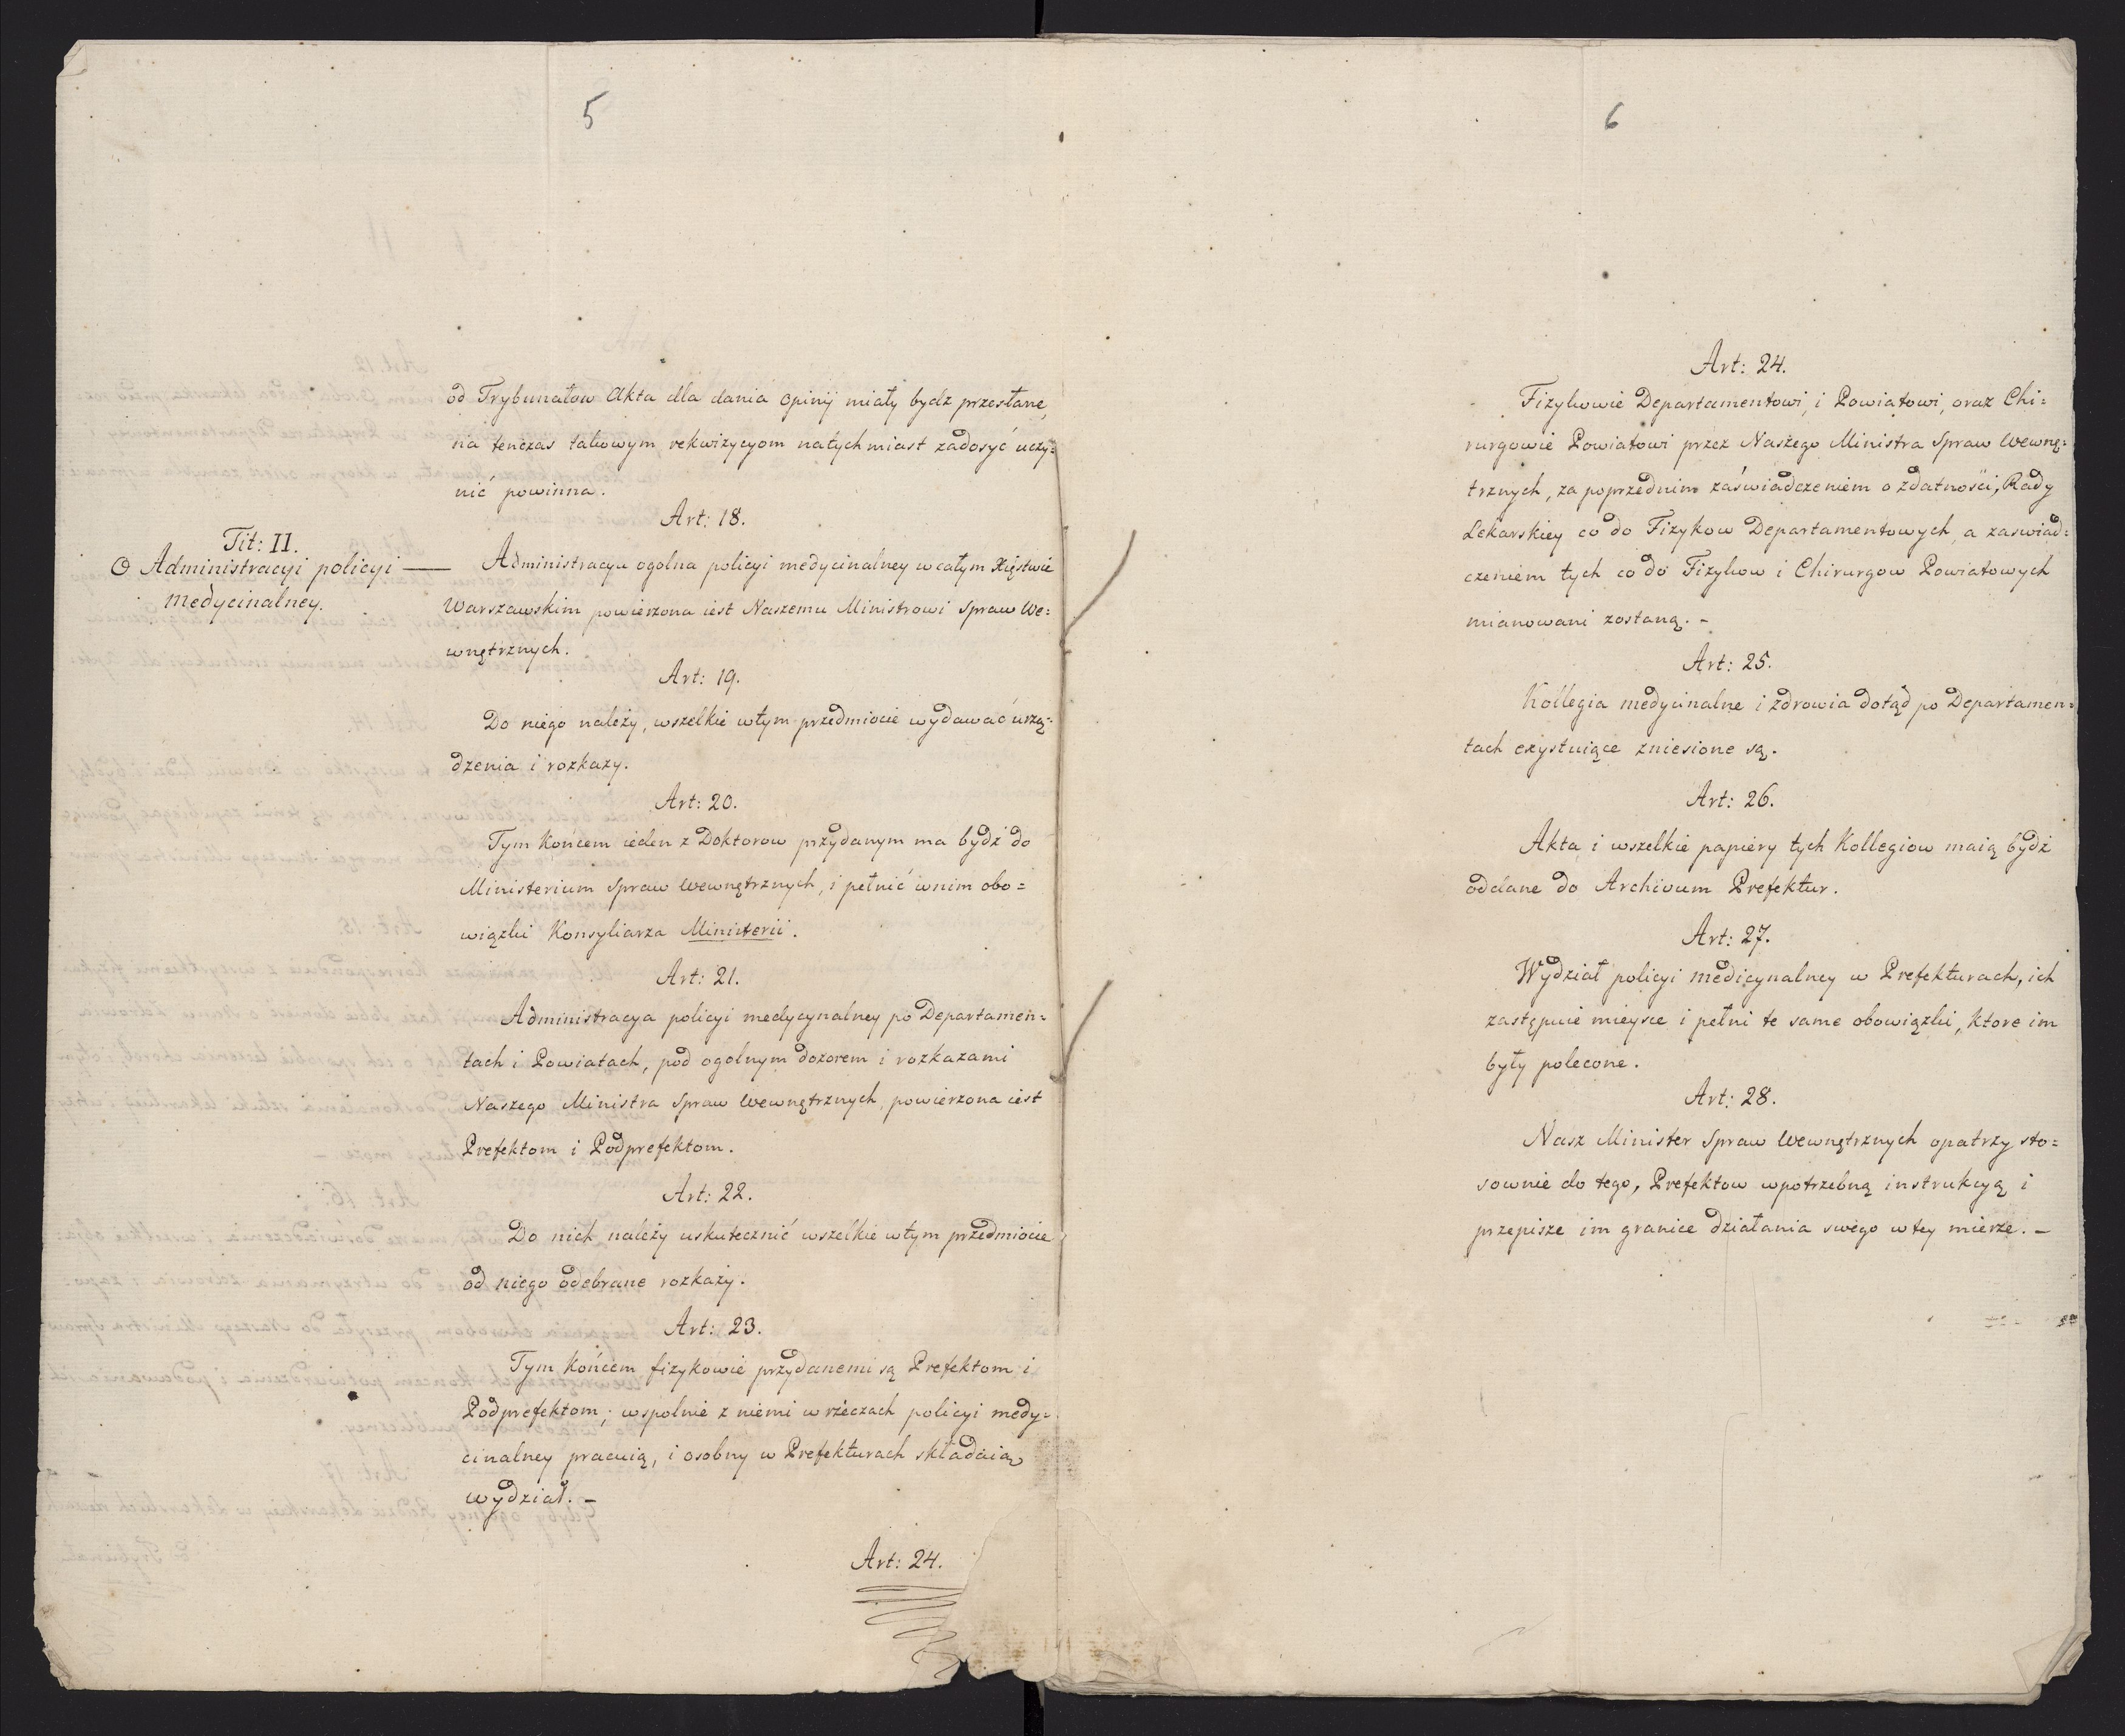 5
od Trybunałow Akta dla dania opinij miały bydz przesłane,
na tenczas takowym rekwizycyom natychmiast zadosyć uczy=
nić powinna.
Art: 18.
Tit: II.
O Administracyi policyi —
medycinalney.
Administracya ogolna policyi medycinalney w całym Xięstwie
Warszawskim powierzona iest Naszemu Ministrowi Spraw We=
wnętrznych.
Art: 19.
Do niego należy, wszelkie w tym przedmiocie wydawać urzą=
dzenia i rozkazy.
Art: 20.
Tym Końcem ieden z Doktorow przydanym ma bydź do
Ministerium Spraw Wewnętrznych, i pełnić w nim obo=
wiązki Konsyliarza Ministerii.
Art: 21.
Administracya policyi medycynalney po Departamen=
tach i Powiatach, pod ogolnym dozorem i rozkazami
Naszego Ministra Spraw Wewnętrznych, powierzona iest
Prefektom i Podprefektom.
Art: 22.
Do nich należy uskutecznić wszelkie w tym przedmiocie
od niego odebrane rozkazy.
Art: 23.
Tym Końcem fizykowie przydanemi są Prefektom i
Podprefektom; wspolnie z niemi w rzeczach policyi medy=
cinalney pracuią, i osobny w Prefekturach składaią
wydział. –
Art: 24.
6
Art: 24.
Fizykowie Departamentowi, i Powiatowi, oraz Chi=
rurgowie Powiatowi przez Naszego Ministra Spraw Wewnę=
trznych, za poprzednim zaświadczeniem o zdatności, Rady
Lekarskiey co do Fizykow Departamentowych, a zaswiad=
czeniem tych co do Fizykow i Chirurgow Powiatowych
mianowani zostaną. –
Art: 25.
Kollegia medycinalne i zdrowia dotąd po Departamen=
tach exystuiące zniesione są.
Art: 26.
Akta i wszelkie papiery tych Kollegiow maią bydź
oddane do Archivum Prefektur.
Art: 27.
Wydział policyi medicynalney w Prefekturach, ich
zastępuie mieysce i pełni te same obowiązki, ktore im
były polecone.
Art: 28.
Nasz Minister Spraw Wewnętrznych opatrzy sto=
sownie do tego, Prefektow w potrzebną instrukcyą i
przepisze im granice działania swego w tey mierze. –